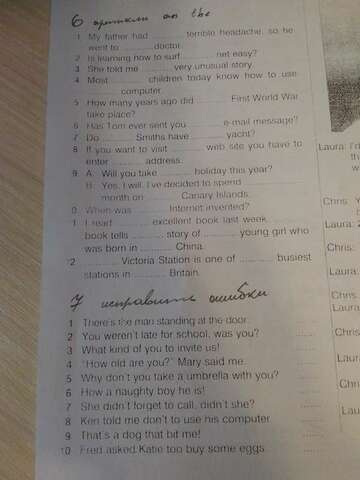 6 артикли an the
1 My father had ........... terrible headache, so he
went to ........... doctor.
2 Is learning how to surf ........... net easy?
3 She told me ........... very unusual story.
4 Most ........... children today know how to use
........... computer.
5 How many years ago did ........... First World War
take place?
6 Has Tom ever sent you ........... e-mail message?
7 Do ........... Smiths have ........... yacht?
8 If you want to visit ........... web site you have to
enter ........... address.
9 A: Will you take ........... holiday this year?
B: Yes, I will. I've decided to spend ...........
month on ........... Canary Islands.
0 When was ........... Internet invented?
1 I read ........... excellent book last week. ...........
book tells ........... story of ........... young girl who
was born in ........... China.
2 ........... Victoria Station is one of ........... busiest
stations in ........... Britain.
7 исправить ошибки
1 There's the man standing at the door.
2 You weren't late for school, was you?
3 What kind of you to invite us!
4 "How old are you?" Mary said me.
5 Why don't you take a umbrella with you?
6 How a naughty boy he is!
7 She didn't forget to call, didn't she?
8 Ken told me don't to use his computer.
9 That's a dog that bit me!
10 Fred asked Katie too buy some eggs.
Laura: I'd
Chris:
Laura:
Chris:
Laura:
Laura:
Chris:
Laura: